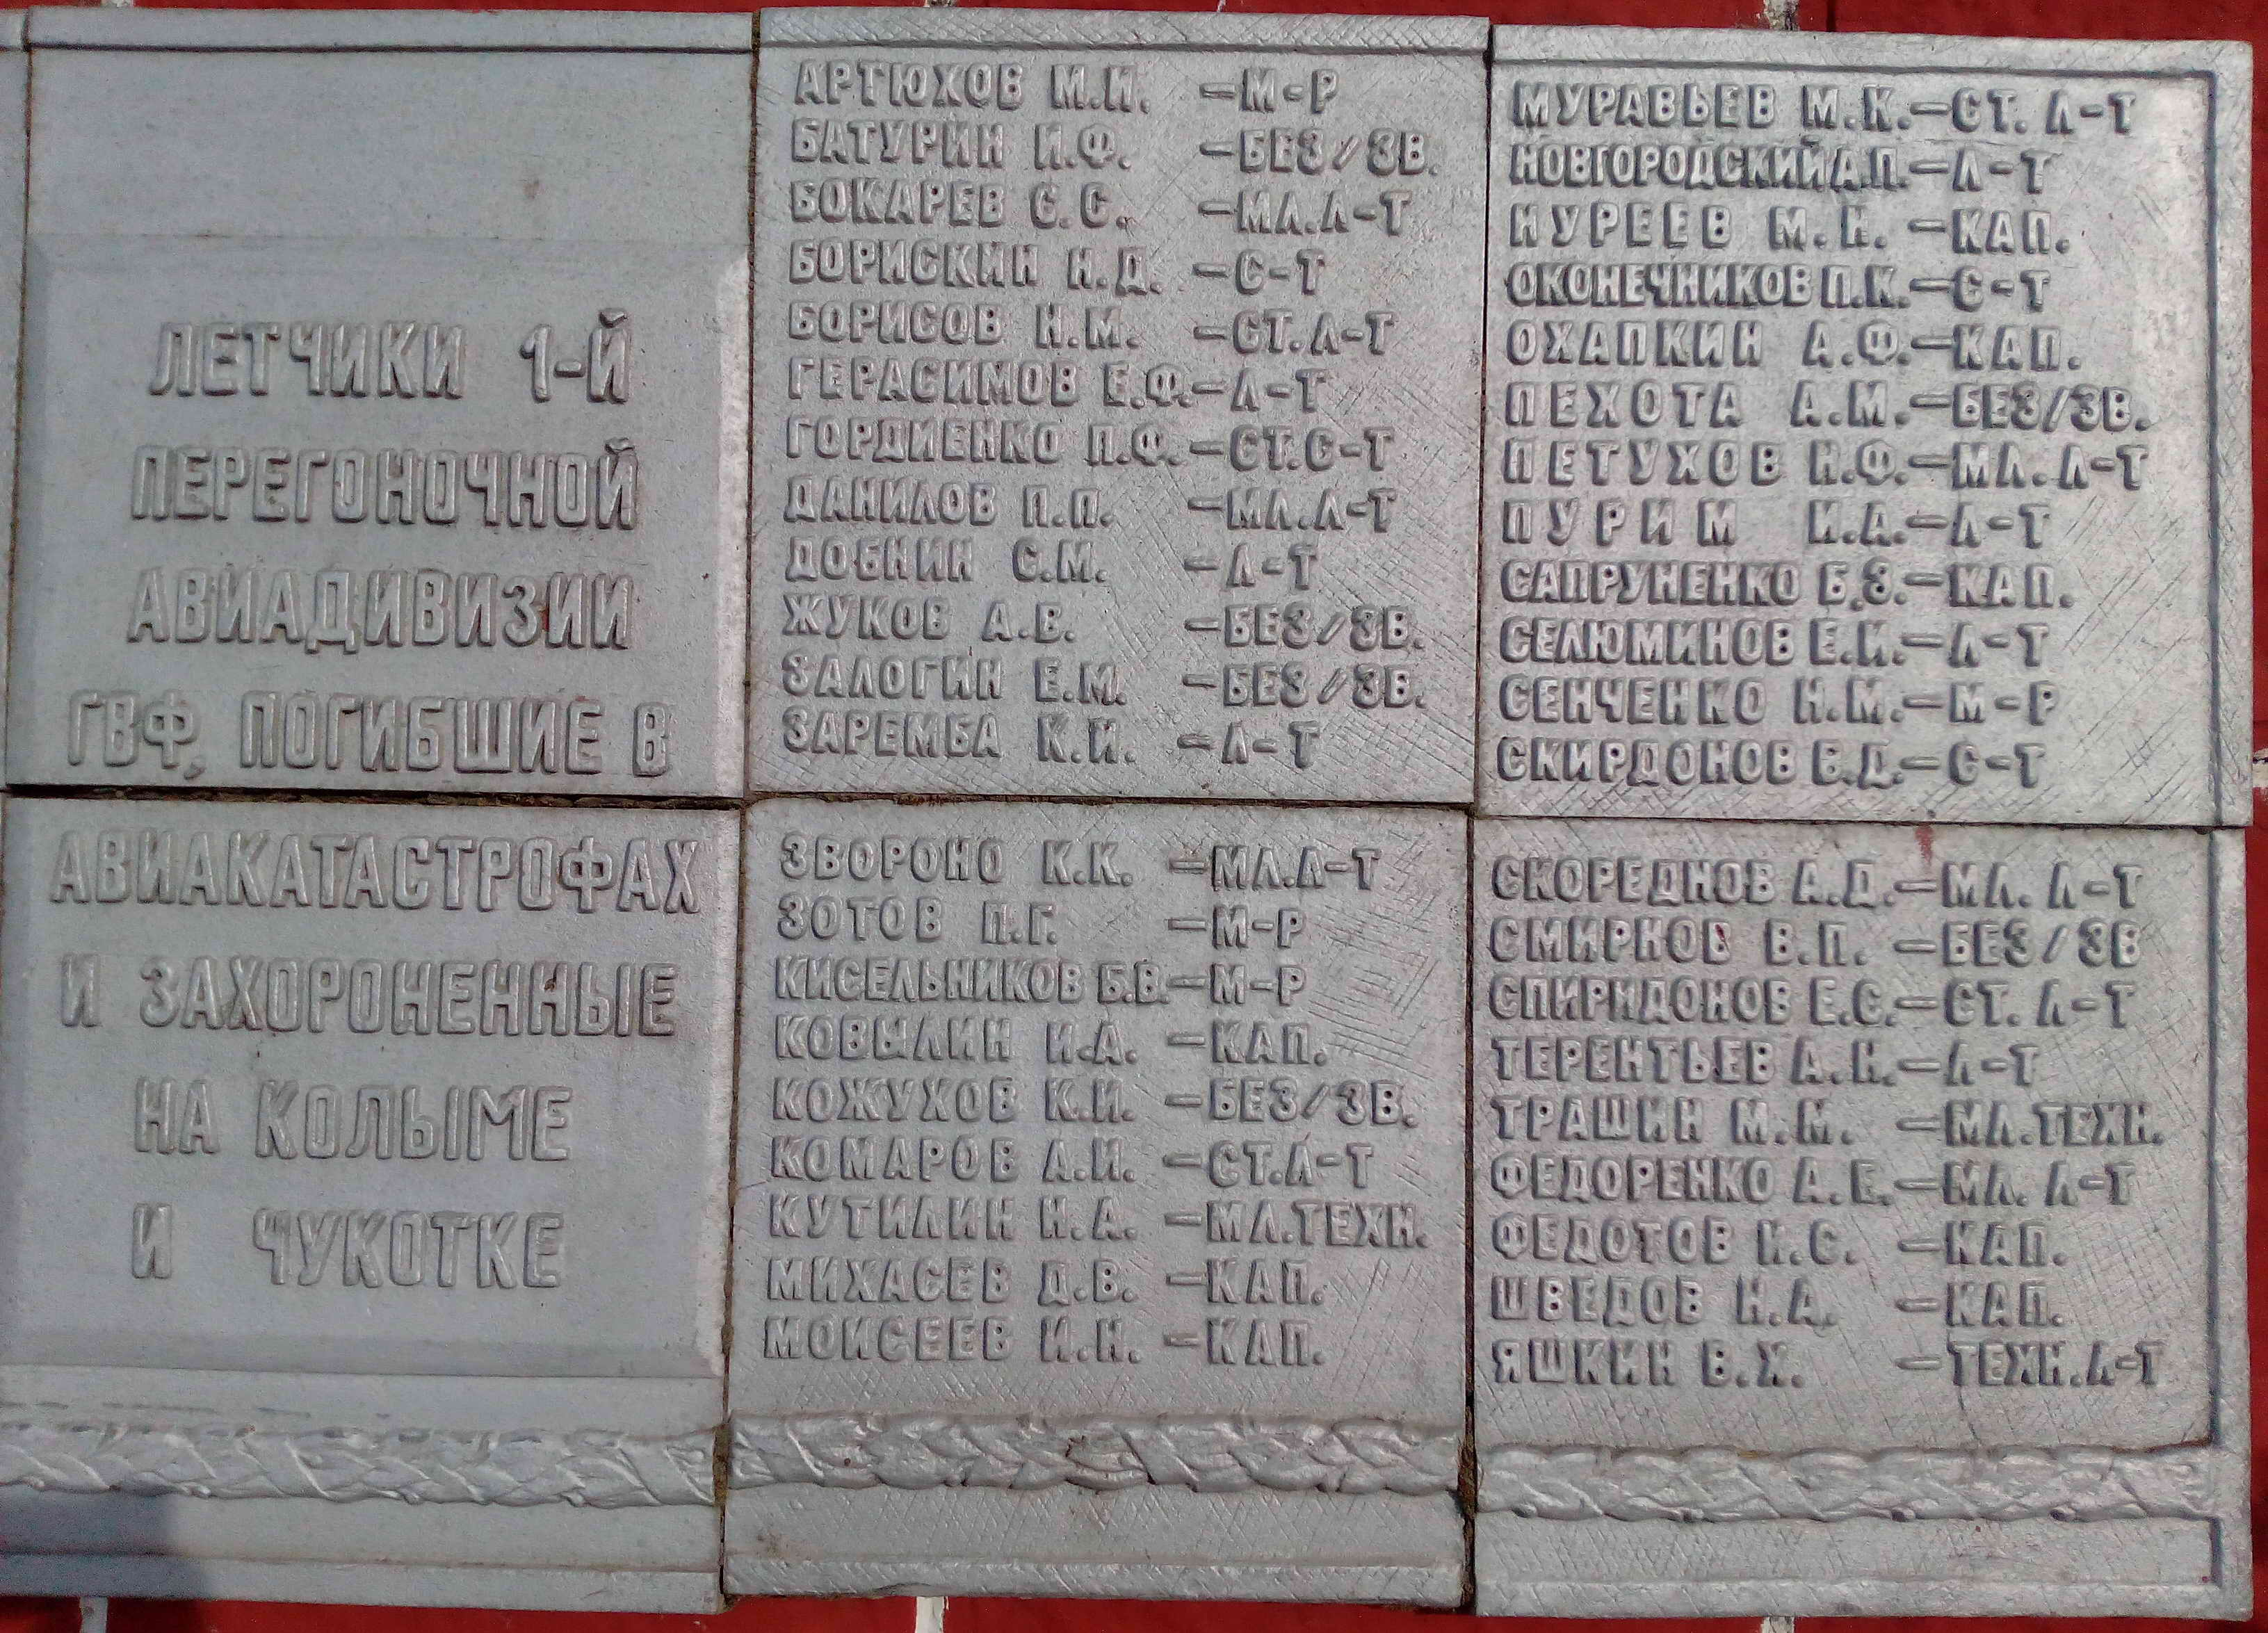 ЛЕТЧИКИ 1-Й
ПЕРЕГОНОЧНОЙ
АВИАДИВИЗИИ
ГВФ, ПОГИБШИЕ В
АВИАКАТАСТРОФАХ
И ЗАХОРОНЕННЫЕ
НА КОЛЫМЕ
И ЧУКОТКЕ
АРТЮХОВ М.И. – М-Р
БАТУРИН И.Ф. – БЕЗ/ЗВ.
БОКАРЕВ С.С. – МЛ.Л-Т
БОРИСКИН Н.Д. – С-Т
БОРИСОВ Н.М. – СТ.Л-Т
ГЕРАСИМОВ Е.Ф. – Л-Т
ГОРДИЕНКО П.Ф. – СТ.С-Т
ДАНИЛОВ П.П. – МЛ.Л-Т
ДОБНИН С.М. – Л-Т
ЖУКОВ А.В. – БЕЗ/ЗВ.
ЗАЛОГИН Е.М. – БЕЗ/ЗВ.
ЗАРЕМБА К.И. – Л-Т
ЗВОРОНО К.К. – МЛ.Л-Т
ЗОТОВ П.Г. – М-Р
КИСЕЛЬНИКОВ Б.В. – М-Р
КОВЫЛИН И.А. – КАП.
КОЖУХОВ К.И. – БЕЗ/ЗВ.
КОМАРОВ А.И. – СТ.Л-Т
КУТИЛИН Н.А. – МЛ.ТЕХН.
МИХАСЕВ Д.В. – КАП.
МОИСЕЕВ И.Н. – КАП.
МУРАВЬЕВ М.К. – СТ. Л-Т
НОВГОРОДСКИЙ А.П. – Л-Т
НУРЕЕВ М.Н. – КАП.
ОКОНЕЧНИКОВ П.К. – С-Т
ОХАПКИН А.Ф. – КАП.
ПЕХОТА А.М. – БЕЗ/ЗВ.
ПЕТУХОВ Н.Ф. – МЛ. Л-Т
ПУРИМ И.А. – Л-Т
САПРУНЕНКО Б.З. – КАП.
СЕЛЮМИНОВ Е.И. – Л-Т
СЕНЧЕНКО Н.М. – М-Р
СКИРДОНОВ В.Д. – С-Т
СКОРЕДНОВ А.Д. – МЛ. Л-Т
СМИРНОВ В.П. – БЕЗ/ЗВ
СПИРИДОНОВ Е.С. – СТ. Л-Т
ТЕРЕНТЬЕВ А.Н. – Л-Т
ТРАШИН М.М. – МЛ.ТЕХН.
ФЕДОРЕНКО А.Е. – МЛ. Л-Т
ФЕДОТОВ И.С. – КАП.
ШВЕДОВ Н.А. – КАП.
ЯШКИН В.Х. – ТЕХН.Л-Т